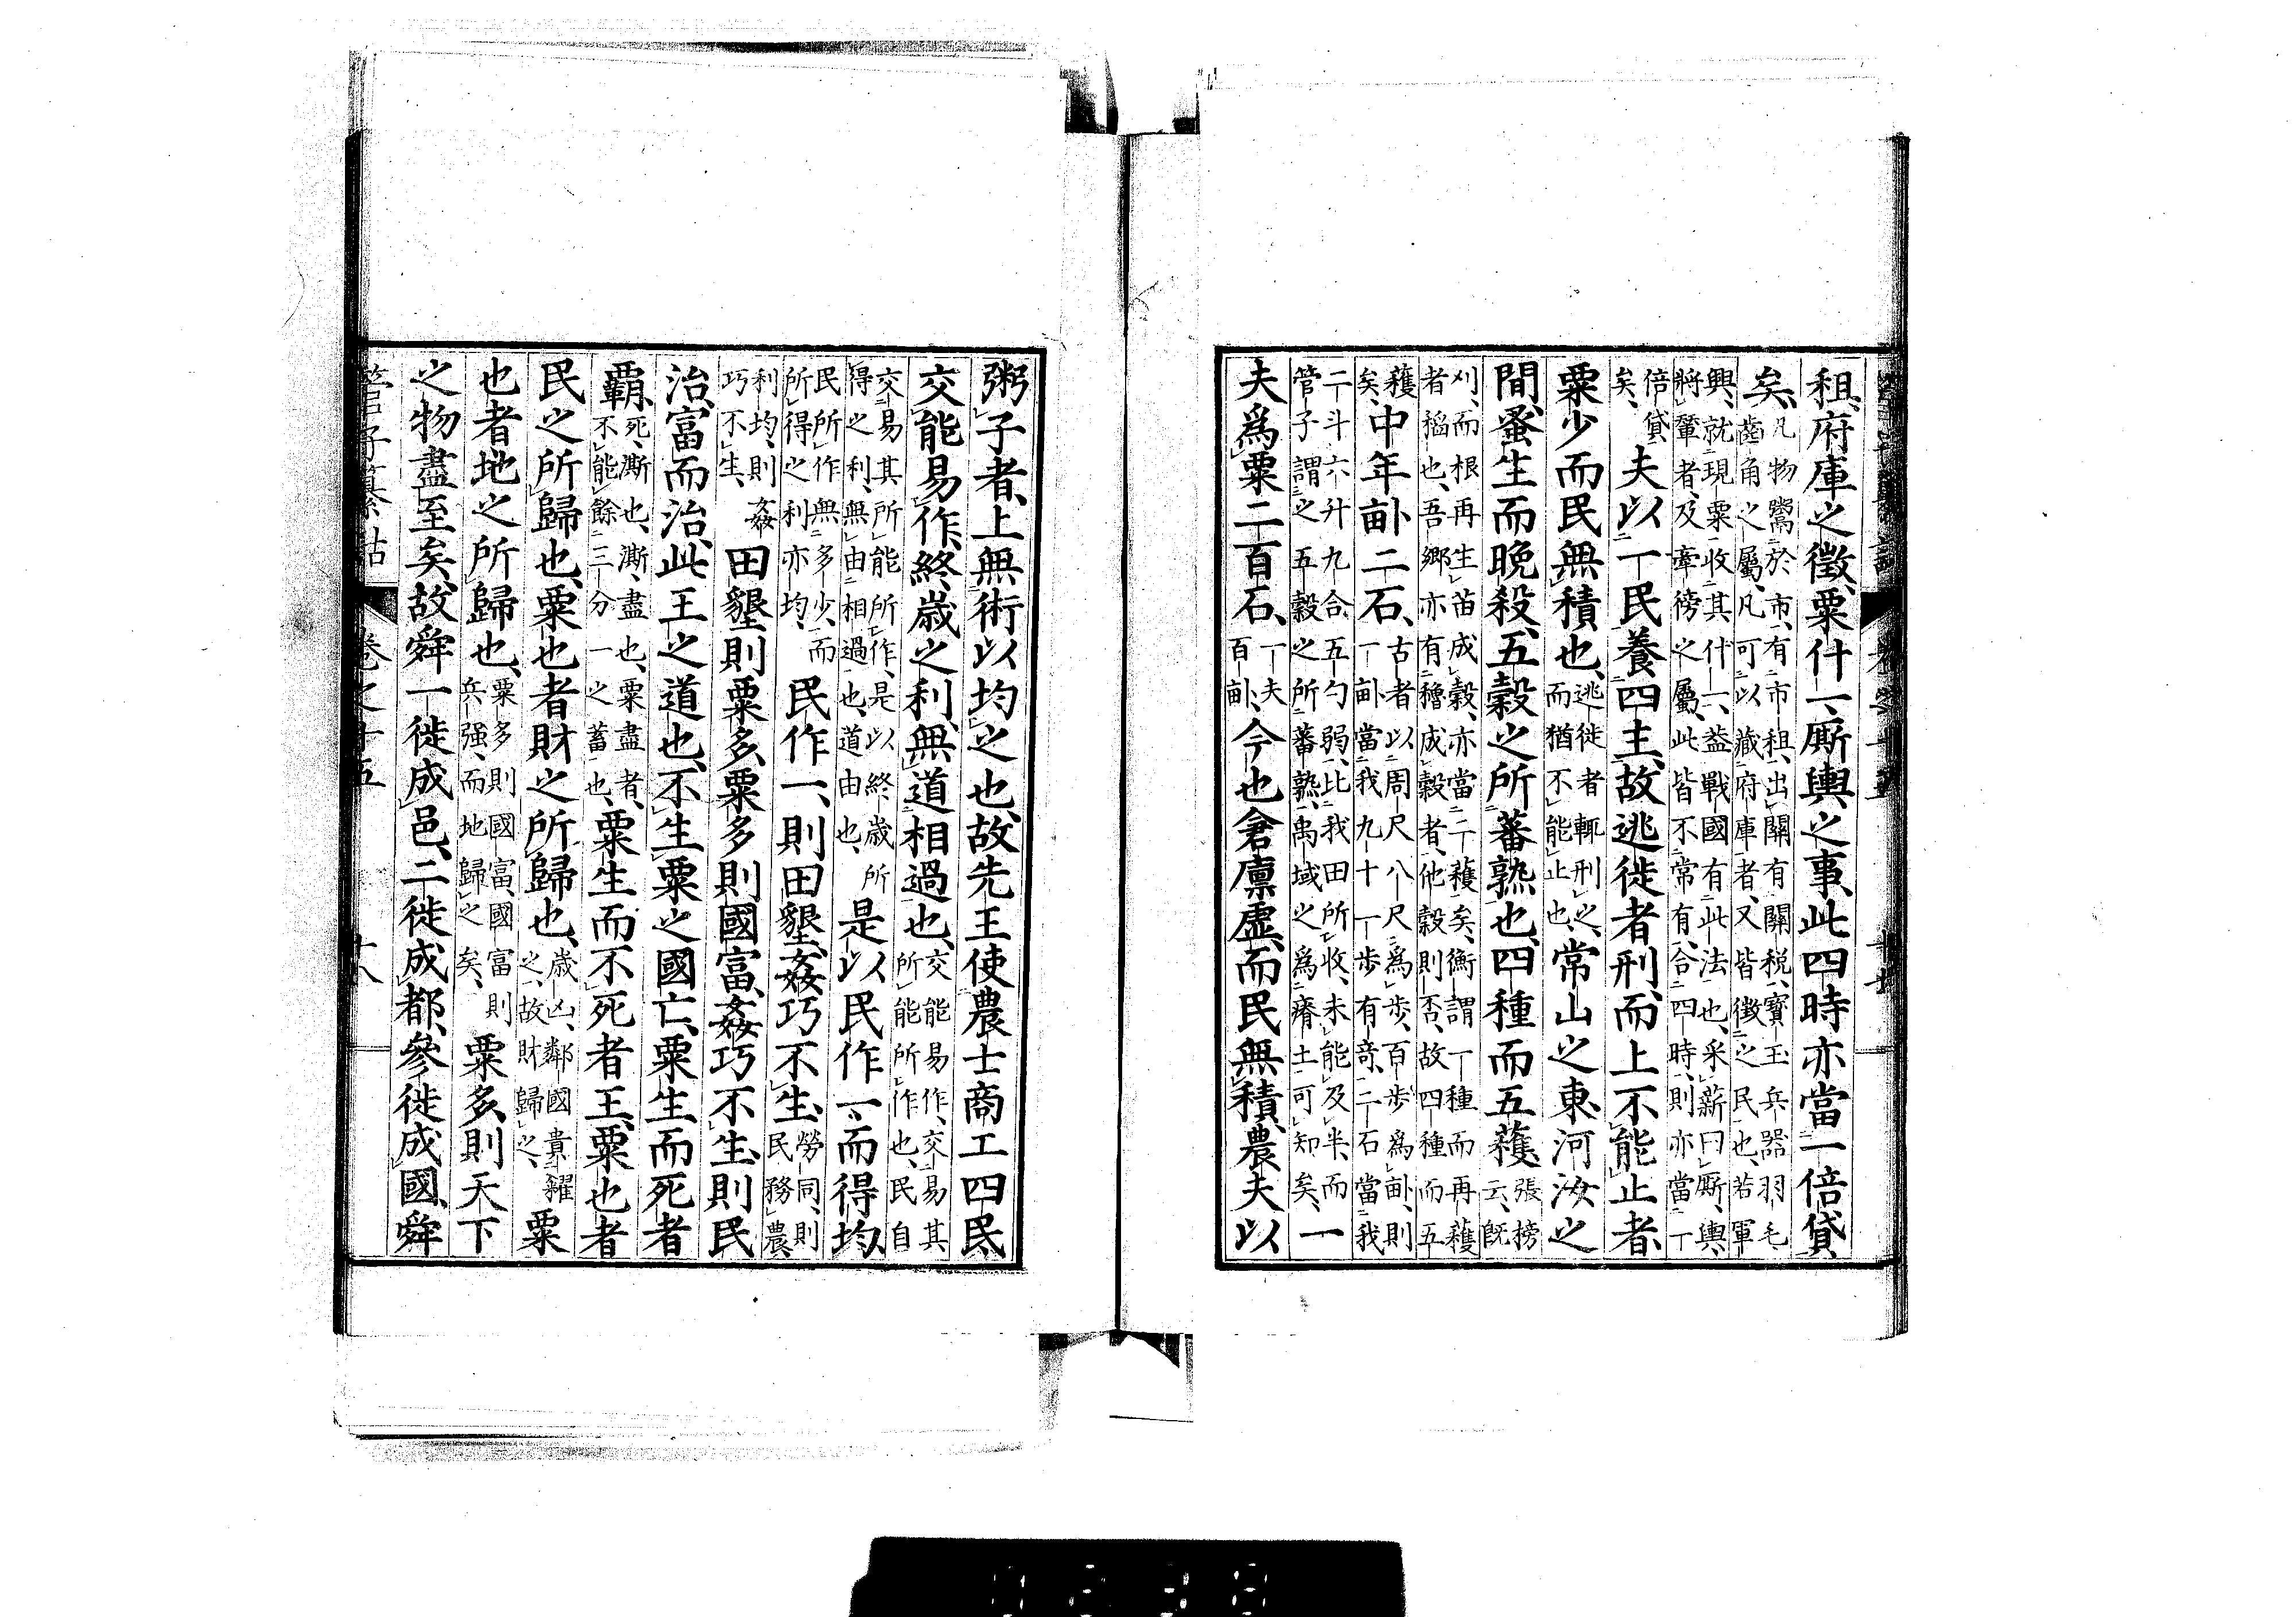 租、府庫之徵、粟什一、厮輿之事、此四時亦當一倍貸
矣、凡物鬻於市、有市租、出關有關税、寶玉兵器羽毛
齒角之屬、凡可以藏府庫者、又皆徵之民也、若軍
興、就現粟收其什一、蓋戰國有此法也、采薪曰厮、輿、
將輦者、及牽徬之屬、此皆不常有、合四時、則亦當一
倍貸矣、夫以一民養四主、故逃徙者刑、而上不能止者、
粟少而民無積也、逃徙者輒刑之、而猶不能止也、常山之東、河汝之
間、蚤生而晚殺、五穀之所蕃熟也、四種而五穫、張榜云、既
刈、而根再生、苗成穀、亦當一穫矣、衡謂一種而再穫
者稻也、吾鄉亦有穭成穀者、他穀則否、故四種而五
穫矣、中年畝二石、古者以周尺八尺爲步、百步爲畝、則一畝當我九十一步有奇、二石當我
二斗六升九合五勺弱、比我田所收、未能及半、而
管子謂之五穀之所蕃熟、禹域之爲瘠土可知矣、一
夫爲粟二百石、一夫百畝、今也倉廩虛、而民無積、農夫以
粥子者、上無術以均之也、故先王使農士商工四民、
交能易作、終歲之利、無道相過也、交能易作、交易其所能所作也、民自
交易其所能所作、是以終歲所得之利、無由相過也、道由也、是以民作一、而得均、
民所作無多少、而所得之利亦均、民作一、則田墾、姦巧不生、勞同、則民務農、
利均、則姦巧不生、田墾則粟多、粟多則國富、姦巧不生、則民
治、富而治、此王之道也、不生粟之國亡、粟生而死者
霸、死、澌也、澌、盡也、粟盡者、不能餘三分一之蓄也、粟生而不死者王、粟也者
民之所歸也、粟也者財之所歸也、歲凶、鄰國貴糴之、故財歸之、粟
也者地之所歸也、粟多則國富、國富則兵强、而地歸之矣、粟多、則天下
之物盡至矣、故舜一徙成邑、二徙成都、參徙成國、舜
管子纂詁 卷之十五 十八